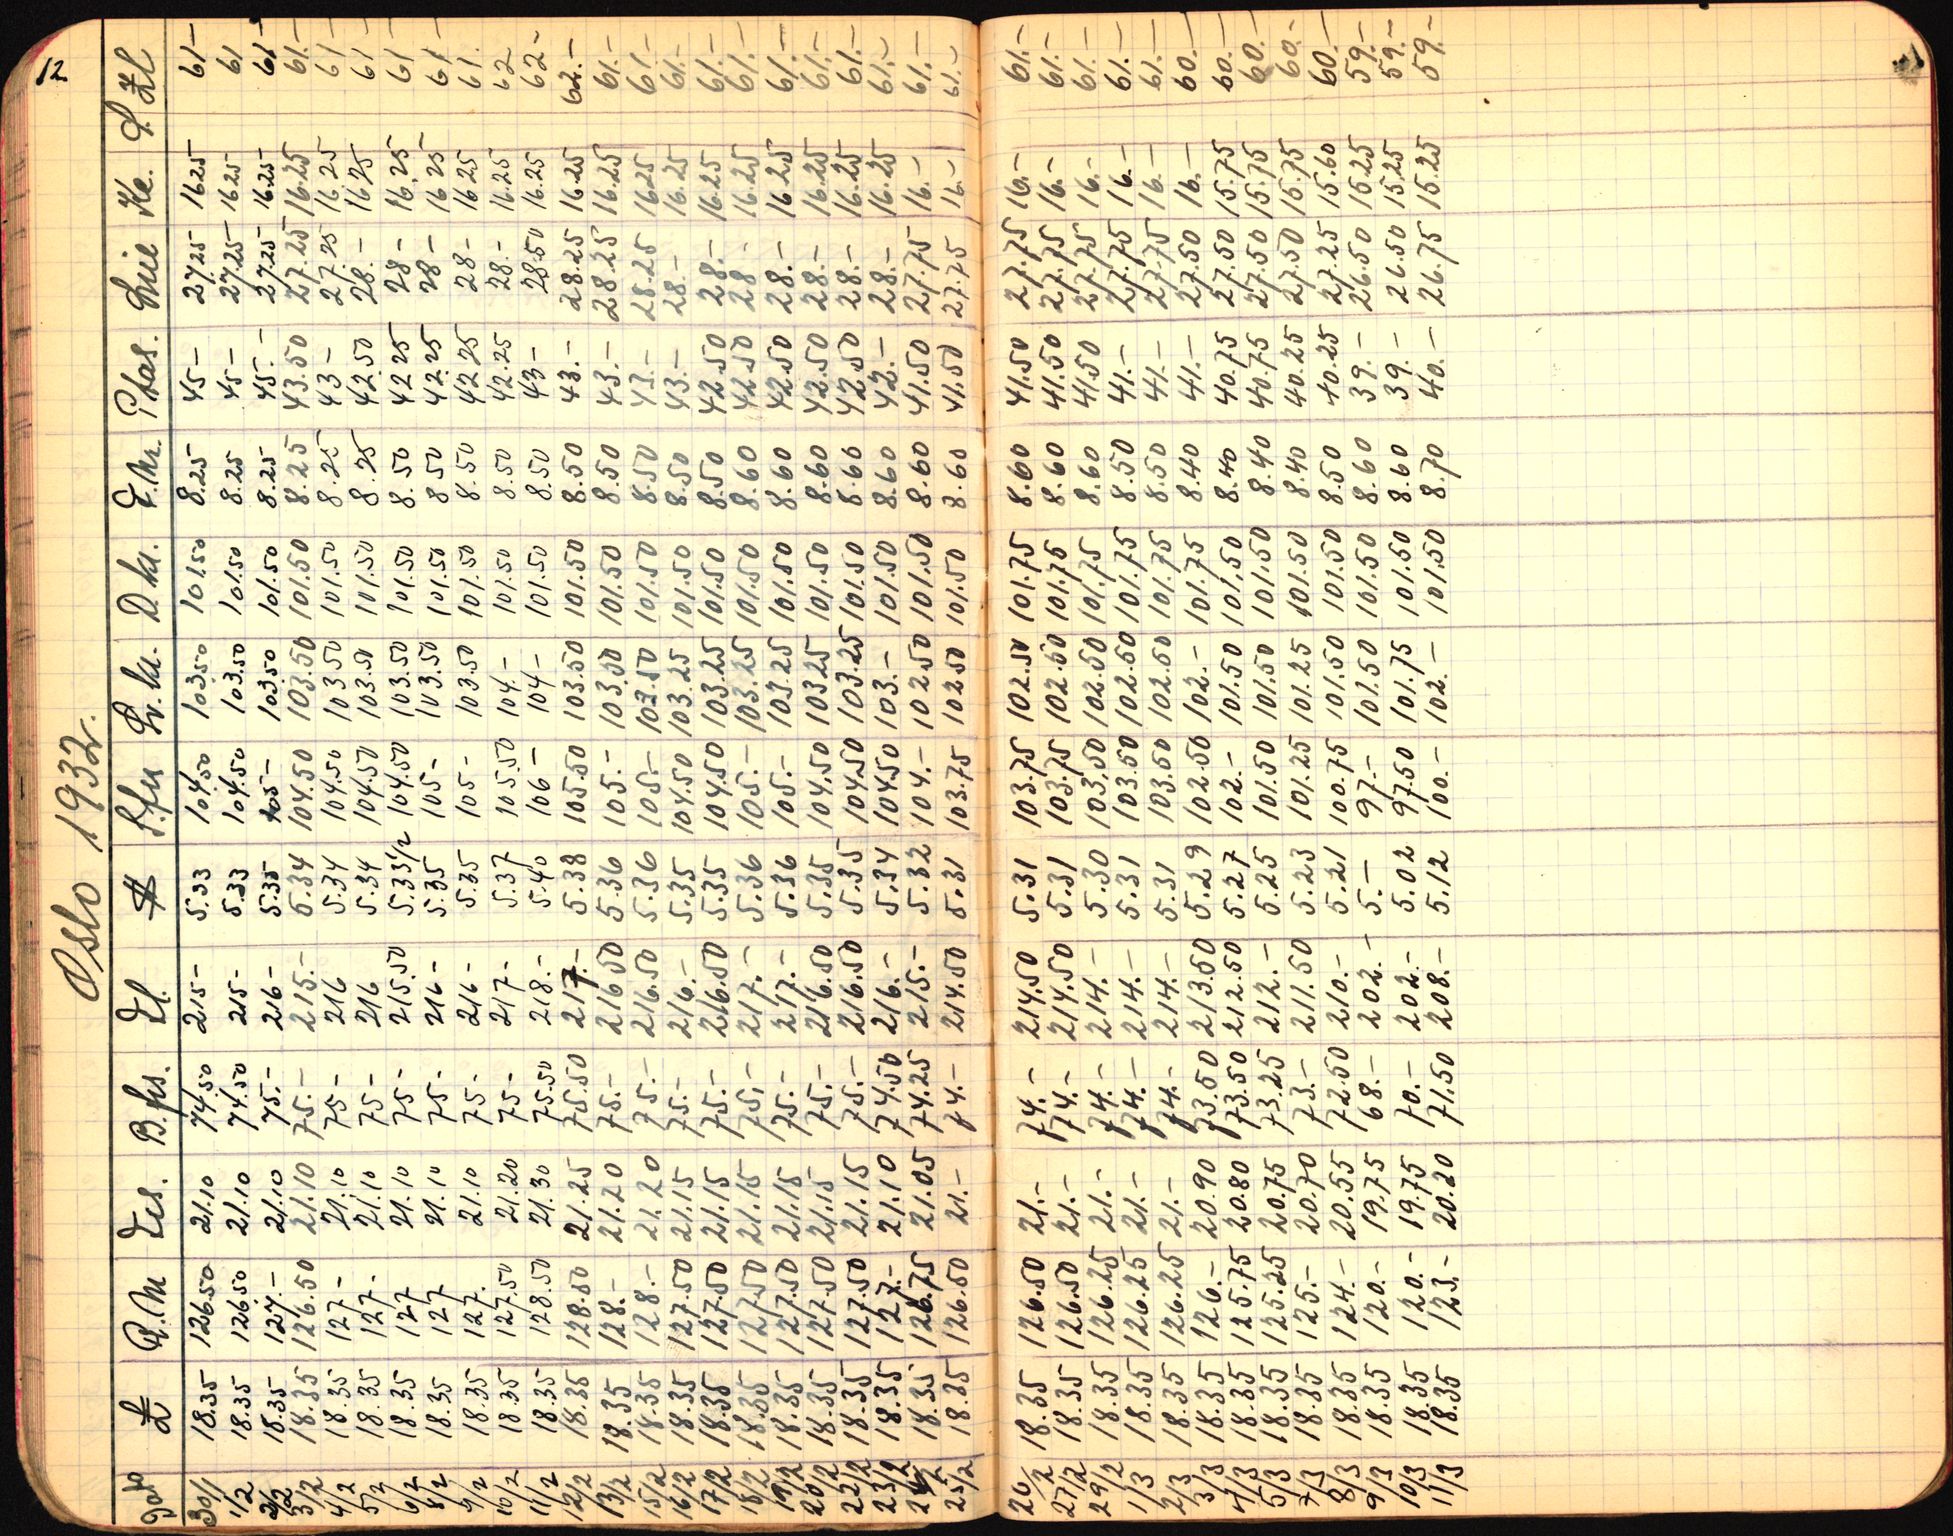 12
Oslo 1932.
Dato £ R.M frcs. B.frs. Fl. $ S.fr Sv.kr. D.kr. F.Mk. Ptas. Lire Kc. P. Zl
30/1 18.35 126.50 21.10 74.50 215- 5.33 104.50 103.50 101.50 8.25 45- 27.25 16.25 61-
1/2 18.35 126.50 21.10 74.50 215- 5.33 104.50 103.50 101.50 8.25 45- 27.25 16.25 61
2/2 18.35 127.- 21.10 75.- 216- 5.35 105- 103.50 101.50 8.25 45.- 27.25 16.25 61-
3/2 18.35 126.50 21.10 75.- 215.- 5.34 104.50 103.50 101.50 8.25 43.50 27.25 16.25 61.-
4/2 18.35 127- 21.10 75- 216 5.34 104.50 103.50 101.50 8.25 43- 27.25 16.25 61-
5/2 18.35 127- 21.10 75- 216 5.34 104.50 103.50 101.50 8.25 42.50 28.- 16.25 61
6/2 18.35 127 21.10 75- 215.50 5.33½ 104.50 103.50 101.50 8.50 42 25 28- 16.25 61-
8/2 18.35 127 21.10 75- 216- 5.35 105- 103.50 101.50 8 50 42.25 28- 16 25 61-
9/2 18.35 127. 21.10 75- 216- 5.35 105- 103.50 101.50 8.50 42.25 28- 16 25 61.
10/2 18.35 127.50 21.20 75- 217- 5.37 105.50 104.- 101.50 8.50 42.25 28.- 16.25 62-
11/2 18.35 128.50 21.30 75.50 218.- 5.40 106- 104- 101.50 8.50 43- 28.50 16.25 62-
12/2 18.35 128.50 21.25 75.50 217.- 5.38 105.50 103.50 101.50 8.50 43.- 28.25 16.25 62.-
13/2 18.35 128.- 21.20 75.- 216 50 5.36 105.- 103.50 101.50 8.50 43.- 28.25 16.25 61.-
15/2 18.35 128.- 21.20 75.- 216.50 5.36 105.- 103.50 101.50 8.50 43.- 28.25 16.25 61.-
16/2 18.35 127.50 21.15 75.- 216.- 5.35 104.50 103.25 101.50 8.50 43.- 28.- 16.25 61.-
17/2 18.35 127.50 21.15 75.- 216.50 5.35 104.50 103.25 101.50 8.50 42.50 28.- 16.25 61.-
18/2 18.35 127.50 21.15 75.- 217.- 5.36 105.- 103.25 101.50 8.60 42.50 28- 16.25 61.-
19/2 18.35 127.50 21.15 75.- 217.- 5.36 105.- 103.25 101.50 8.60 42.50 28.- 16.25 61.-
20/2 18.35 127.50 21.15 75.- 216.50 5.35 104.50 103.25 101.50 8.60 42.50 28.- 16.25 61.-
22/2 18.35 127.50 21.15 75.- 216.50 5.35 104.50 103.25 101.50 8.60 42.50 28.- 16.25 61.-
23/2 18.35 127.- 21.10 74.50 216.- 5.34 104.50 103.- 101.50 8.60 42.- 28.- 16.25 61.-
24/2 18.35 126.75 21.05 74.25 215.- 5.32 104.- 102.50 101.50 8.60 41.50 27.75 16.- 61.-
25/2 18.35 126.50 21.- 74.- 214.50 5.31 103.75 102.50 101.50 8.60 41.50 27.75 16.- 61.-
26/2 18.35 126.50 21.- 74.- 214.50 5.31 103.75 102.50 101.75 8.60 41.50 27.75 16.- 61.-
27/2 18.35 126.50 21.- 74.- 214.50 5.31 103.75 102.50 101.75 8.60 41.50 27.75 16.- 61.-
29/2 18.35 126.25 21.- 74.- 214.- 5.30 103.50 102.50 101.75 8.60 41.50 27.75 16.- 61.-
1/3 18.35 126.25 21.- 74.- 214.- 5.31 103.50 102.50 101.75 8.50 41.- 27.75 16.- 61.-
2/3 18.35 126.25 21.- 74.- 214.- 5.31 103.50 102.50 101.75 8.50 41.- 27.75 16.- 61.-
3/3 18.35 126.- 20.90 73.50 213.50 5.29 102.50 102.- 101.75 8.40 41.- 27.50 16.- 60.-
4/3 18.35 125.75 20.80 73.50 212.50 5.27 102.- 101.50 101.50 8.40 40.75 27.50 15.75 60.-
5/3 18.35 125.25 20.75 73.25 212.- 5.25 101.50 101.50 101.50 8.40 40.75 27.50 15.75 60.-
7/3 18.35 125.- 20.70 73.- 211.50 5.23 101.25 101.25 101.50 8.40 40.25 27.50 15.75 60.-
8/3 18.35 124.- 20.55 72.50 210.- 5.21 100.75 101.50 101.50 8.50 40.25 27.25 15.60 60.-
9/3 18.35 120.- 19.75 68.- 202.- 5.- 97.- 101.50 101.50 8.60 39.- 26.50 15.25 59.-
10/3 18.35 120.- 19.75 70.- 202.- 5.02 97.50 101.75 101.50 8.60 39.- 26.50 15.25 59.-
11/3 18.35 123.- 20.20 71.50 208.- 5.12 100.- 102.- 101.50 8.70 40.- 26.75 15.25 59.-